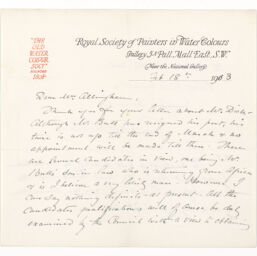 "THE
OLD
WATER
COLOUR
SOCY"
FOUNDED
1804
Royal Society of Painters in Water Colours
Gallery, 5A Pall Mall East, S.W.
(Near the National Gallery)
Feb 18th 1903
Dear Mr Allingham,
Thank you for your letter about Mr
Although Mr Butt has resigned his post, his
time is not up till the end of March & no
appointment will be made till then. There
are several candidates in view, one being Mr
Butt's son in law who is returning from Africa
or is I believe a very likely man. However I
can say nothing definite at present. All the
candidates qualifications will of course be duly
examined by the Council with a view to obtaining